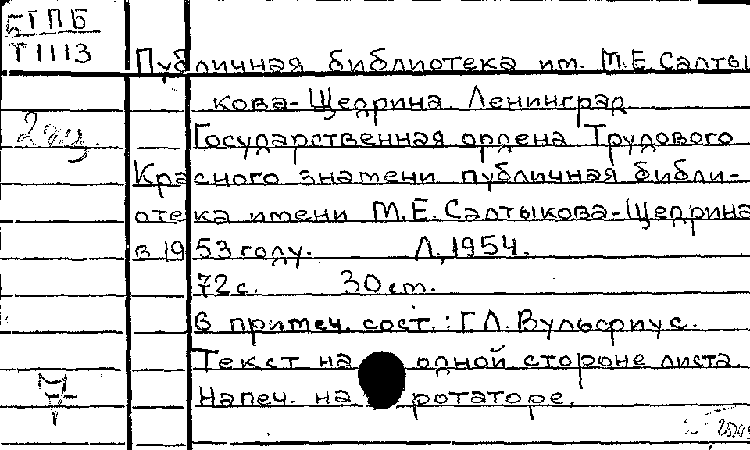 БГПБ
Т1113
Публичная библиотека им. М.Е. Салты
кова-Щедрина. Ленинград.
2 экз.
Государственная ордена Трудового
Красного знамени публичная библи-
отека имени М.Е. Салтыкова-Щедрина
в 1953 году. Л, 1954.
72 с. 30 ст.
В примеч. сост.: Г.Л. Вульфриус.
Текст на одной стороне листа.
Напеч. на ротаторе.